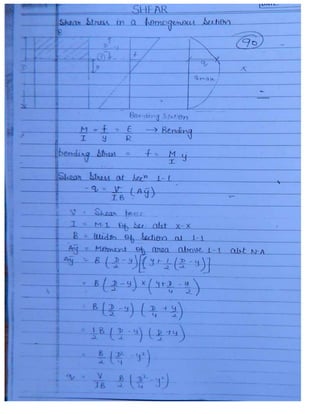 SHEAR
Shear Stress in a homogenous Section
B
90
q
qmax
x
Bending
M/I = f/y = E/R → Bending
bending stress = f = M/I y
Shear Stress at secⁿ 1-1
q = V/IB (Aȳ)
V = Shear force
I = M.I of sec abt x-x
B = Width of section at 1-1
Aȳ = Moment of area above 1-1 abt N.A
Aȳ = B (D/2 - y) [y + 1/2 (D/2 - y)]
= B (D/2 - y) × (y + D/4 - y/2)
= B (D/2 - y) (D/4 + y/2)
= 1/2 B (D/2 - y) (D/2 + y)
= B/2 (D²/4 - y²)
q = V/IB B/2 (D²/4 - y²)